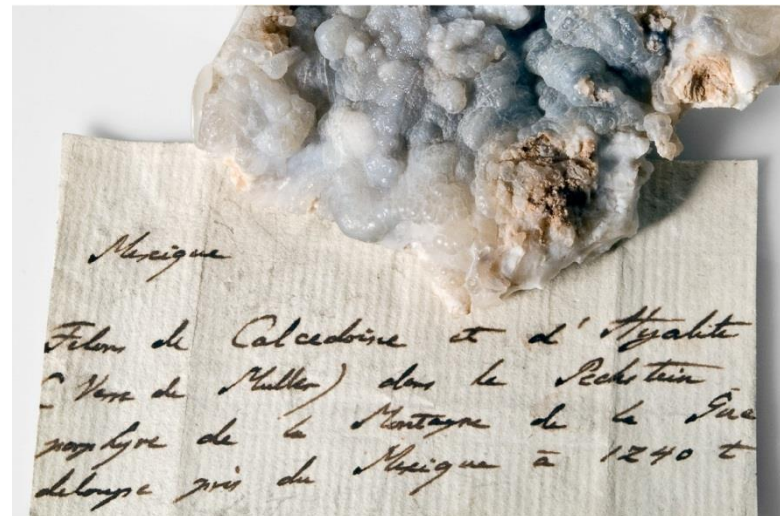 Mexique
Filons de Calcedoine et d'Hyalite
(Verre de Muller) dans le Pechstein
porphyre de la Montagne de la Gua
deloupe près du Mexique à 1240 t